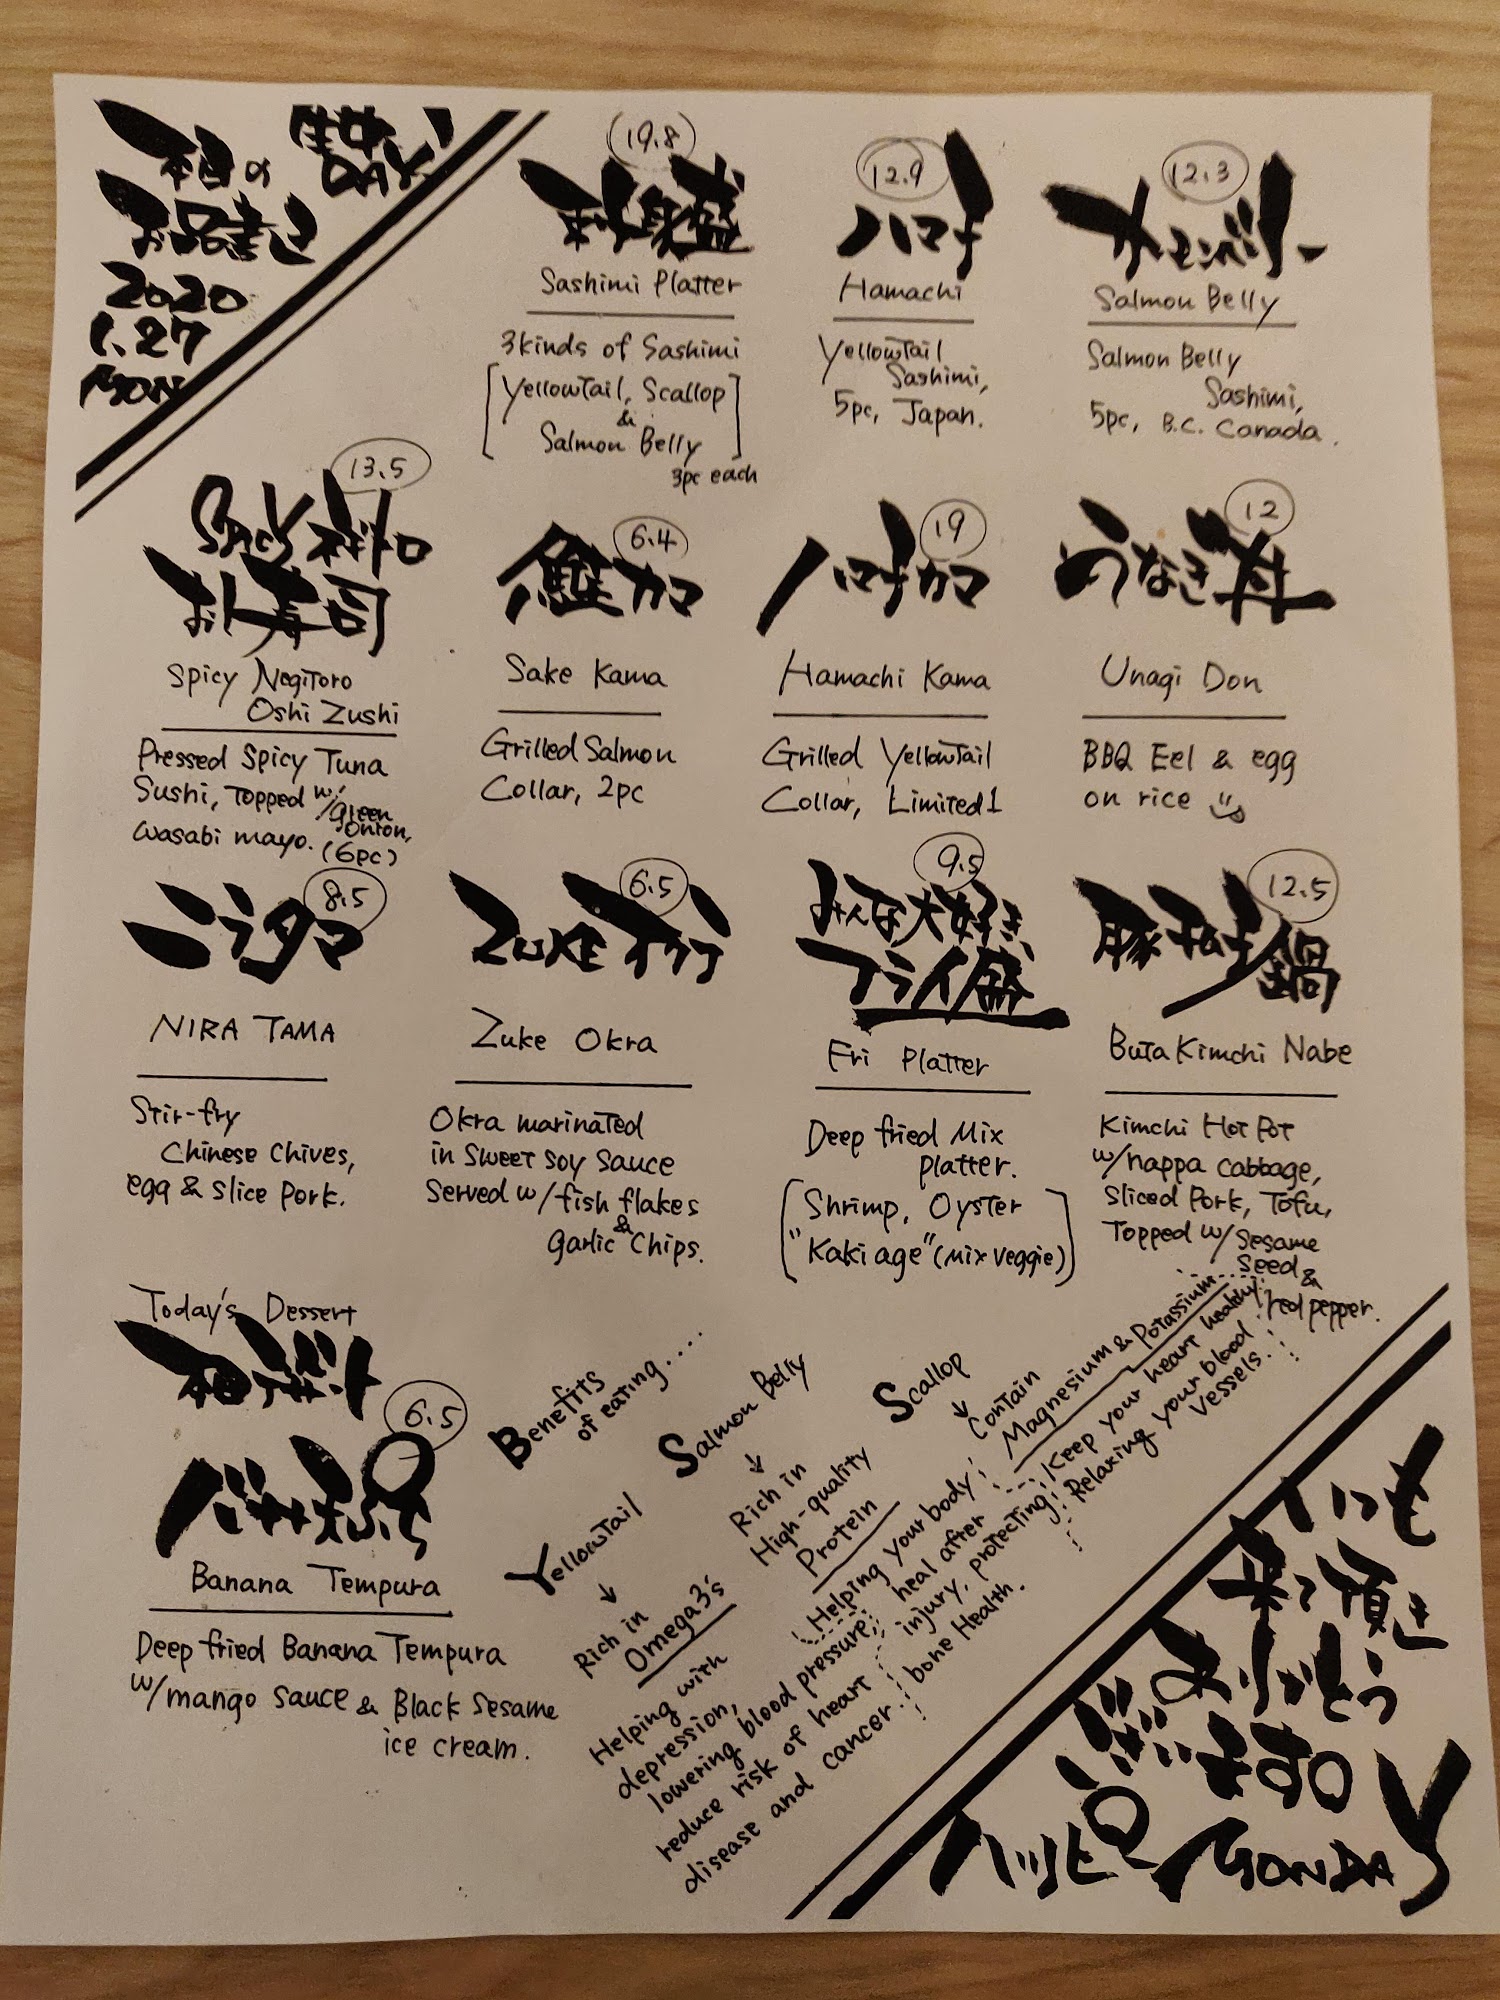 本日の
お品書き
2020
1.27
MON
DAY
19.8
Sashimi Platter
3kinds of Sashimi
[Yellowtail, Scallop
&
Salmon Belly]
3pc each
12.9
ハマチ
Hamachi
Yellowtail
Sashimi,
5pc, Japan.
12.3
サーモンベリー
Salmon Belly
Salmon Belly
Sashimi,
5pc, B.C. Canada.
13.5
SPICYネギトロ
お寿司
Spicy Negitoro
Oshi Zushi
Pressed Spicy Tuna
Sushi, Topped w/
green
onion,
wasabi mayo. (6pc)
6.4
鮭カマ
Sake Kama
Grilled Salmon
Collar, 2pc
19
ハマチカマ
Hamachi Kama
Grilled Yellowtail
Collar, Limited1
12
うなぎ丼
Unagi Don
BBQ Eel & egg
on rice
8.5
ニラタマ
NIRA TAMA
Stir-fry
Chinese Chives,
egg & slice pork.
6.5
ZUKEオクラ
Zuke Okra
Okra marinated
in sweet soy sauce
served w/fish flakes
&
garlic chips.
9.5
みんな大好き
フライ盛
Fri Platter
Deep fried Mix
platter.
[Shrimp, Oyster
"Kakiage"(Mix veggie)]
12.5
豚キムチ鍋
Buta Kimchi Nabe
Kimchi Hot Pot
w/nappa cabbage,
Sliced Pork, Tofu,
Topped w/sesame
seed &
red pepper.
Today's Dessert
本日デザート
6.5
バナナ天ぷら
Banana Tempura
Deep fried Banana Tempura
w/mango sauce & Black sesame
ice cream.
Benefits
of eating....
Yellowtail
↓
Rich in
Omega3's
Helping with
depression,
lowering blood pressure,
reduce risk of heart
disease and cancer.
Salmon Belly
↓
Rich in
High-quality
Protein
Helping your body
heal after
injury, protecting
bone health.
Scallop
↓
Contain
Magnesium & Potassium
Keep your heart healthy
Relaxing your blood
vessels.
いつも
来て頂き
ありがとう
ございます。
ハッピー MONDAY